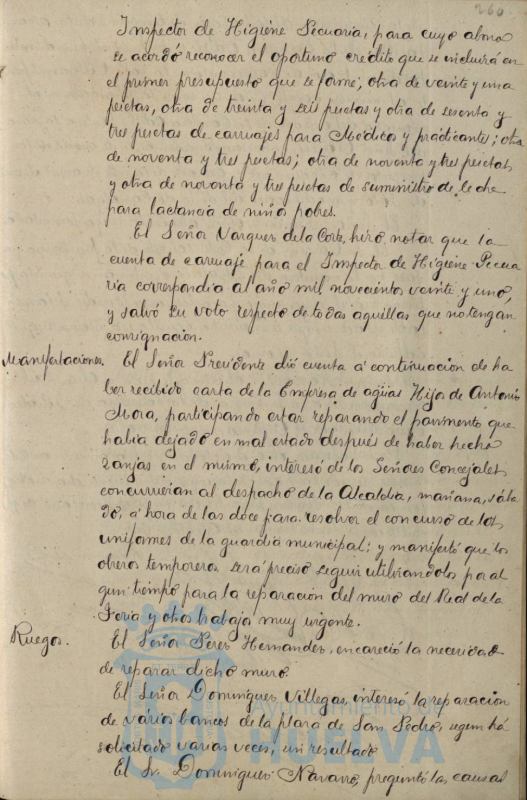 260
Inspector de Higiene Pecuaria, para cuyo abono
se acordó reconocer el oportuno crédito que se incluirá en
el primer presupuesto que se forme; otra de veinte y una
pesetas, otra de treinta y seis pesetas y otra de sesenta y
tres pesetas de carruajes para Médicos y practicantes; otra
de noventa y tres pesetas; otra de noventa y tres pesetas
y otra de noventa y tres pesetas de suministro de leche
para lactancia de niños pobres.
El Señor Vazquez de la Corte, hizo notar que la
cuenta de carruaje para el Inspector de Higiene Pecua
ria correspondia al año mil novecientos veinte y uno,
y salvó su voto respecto de todas aquellas que no tengan
consignacion.
Manifestaciones. El Señor Presidente dió cuenta á continuacion de ha
ber recibido carta de la Empresa de aguas Hija de Antonio
Mora, participando estar reparando el pavimento que
habia dejado en mal estado después de haber hecho
zanjas en el mismo, interesó de los Señores Concejales
concurrieran al despacho de la Alcaldia, mañana, sába
do, á hora de las doce para resolver el concurso de los
uniformes de la guardia municipal; y manifestó que los
obreros temporeros será preciso seguir utilizandolos por al
gun tiempo para la reparación del muro del Real de la
Feria y otros trabajos muy urgente.
Ruegos. El Señor Perez Hernandez, encareció la necesidad
de reparar dicho muro.
El Señor Dominguez Villegas, interesó la reparacion
de varios bancos de la plaza de San Pedro, segun há
solicitado varias veces, sin resultado
El Sr. Dominguez Navarro, preguntó las causas
Ayuntamiento de
HUELVA